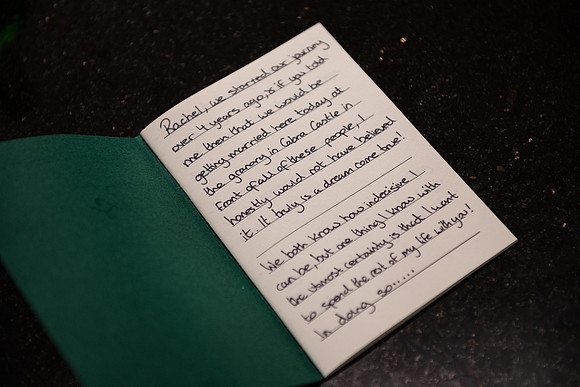 Rachel, we started our journey
over 4 years ago, & if you told
me then that we would be
getting married here today at
the granary in Cabra Castle in
front of all of these people, I
honestly would not have believed
it. It truly is a dream come true!
We both know how indecisive I
can be, but one thing I know with
the utmost certainty is that I want
to spend the rest of my life with you!
In doing so.....